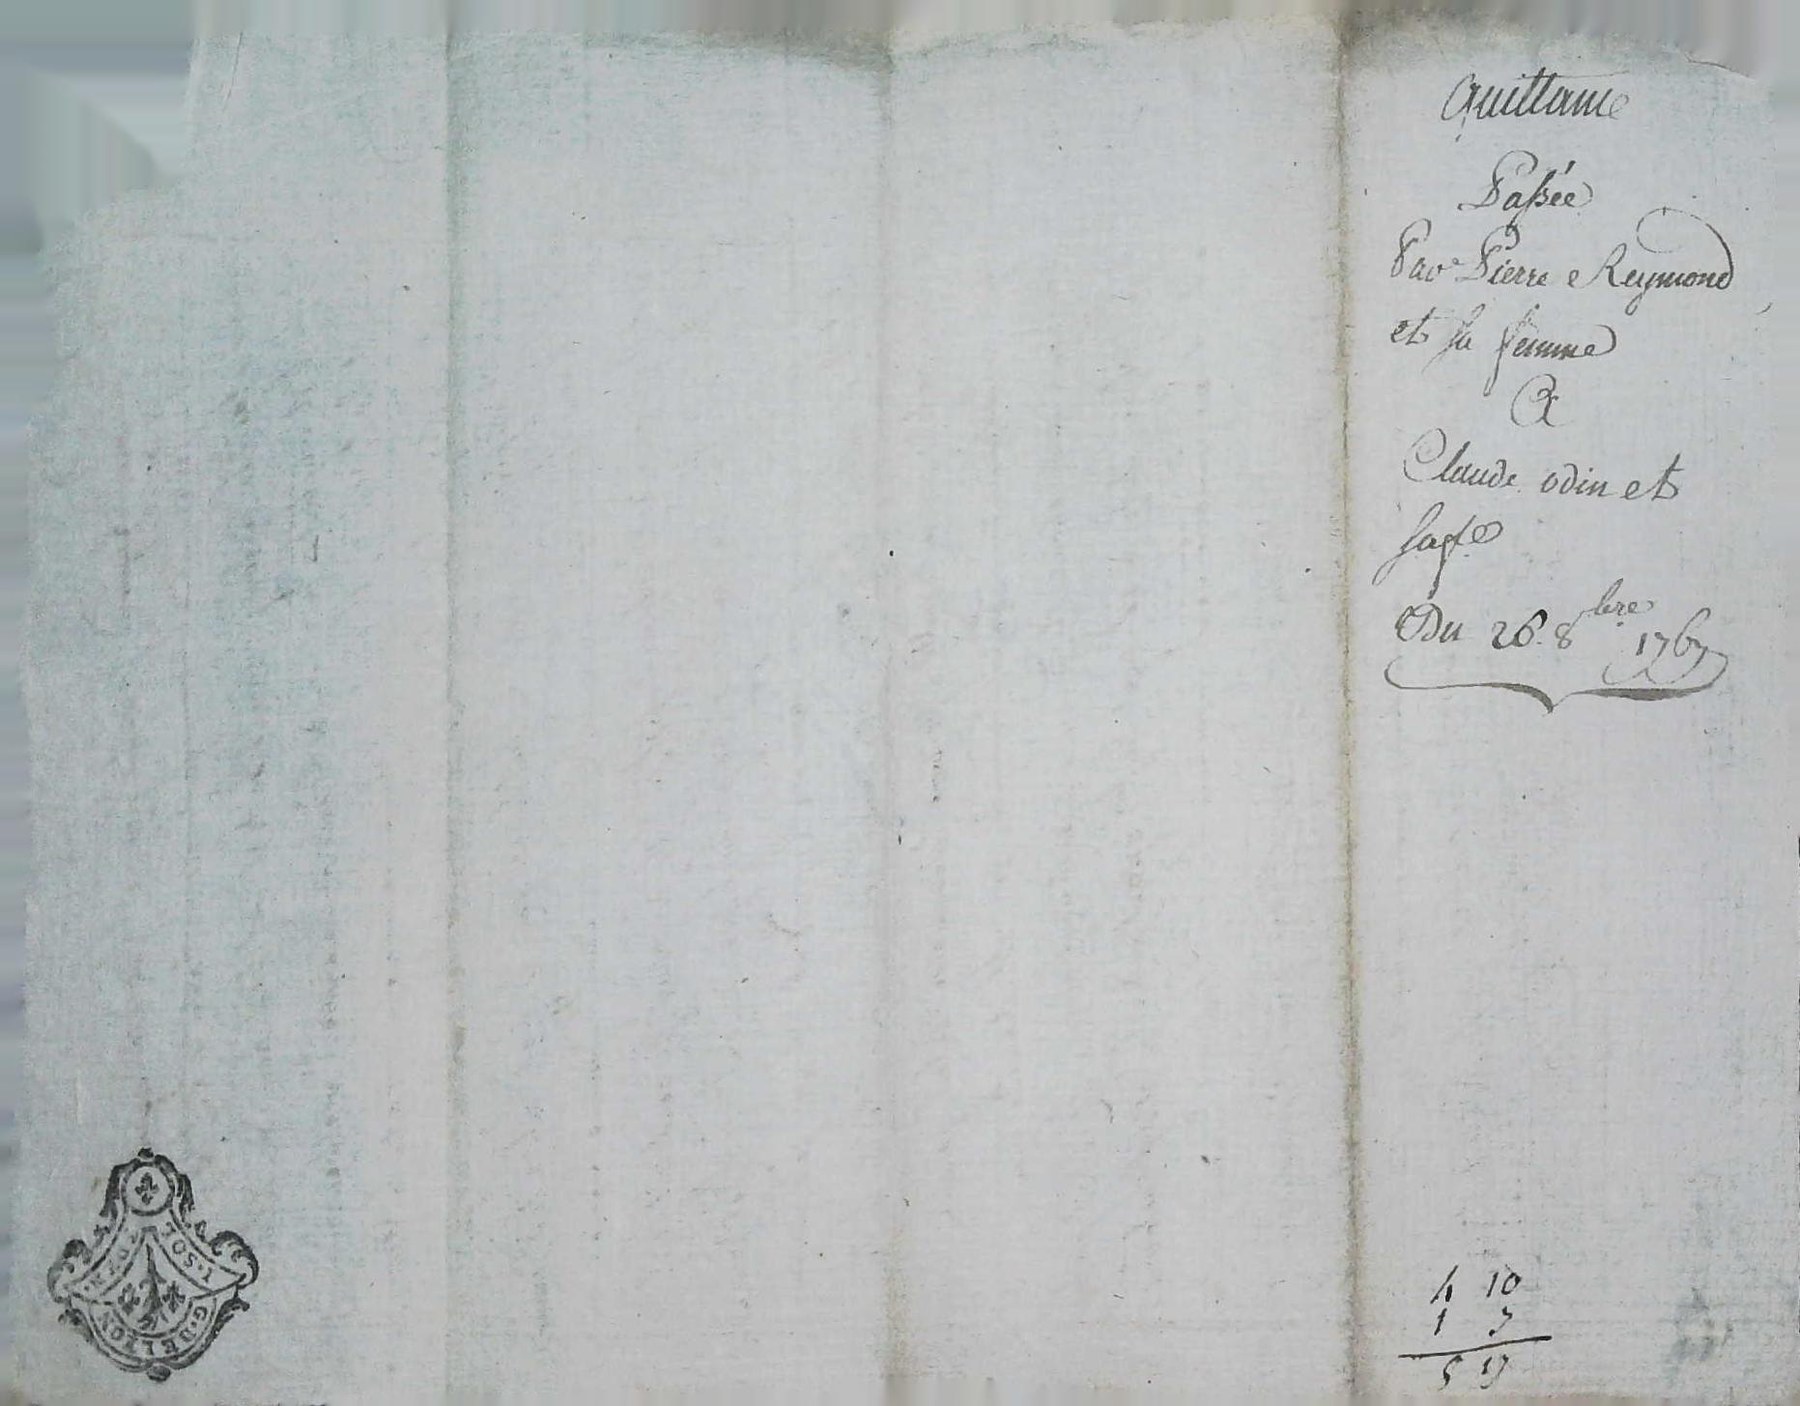 Quittance
Passée
Par Pierre Reymond
et sa femme
A
Claude odin et
sa fe
Du 26. 8bre 1767
4 10
1 7
5 17
1 SOL
G. DE LYON